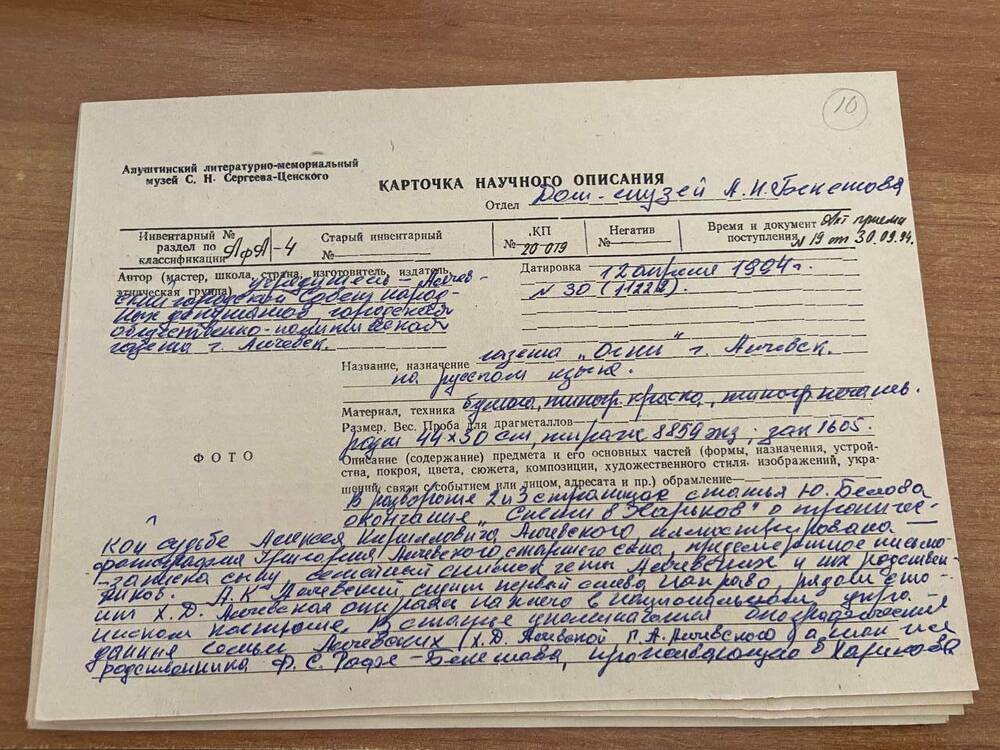 10
Алуштинский литературно-мемориальный
музей С. Н. Сергеева-Ценского
КАРТОЧКА НАУЧНОГО ОПИСАНИЯ
Отдел Дом-музей А. Н. Бекетова
Инвентарный №
раздел по
классификации АфА-4
Старый инвентарный
№
КП
№ 20-019
Негатив
№
Время и документ Акт приема
поступления №19 от 30.09.94.
Автор (мастер, школа, страна, изготовитель, издатель,
этническая группа) учредитель – Алчев-
ский городской Совет народ-
ных депутатов городская
общественно-политическая
газета г. Алчевск.
Датировка 12 апреля 1994 г.
№ 30 (11222).
Название, назначение газета „Огни" г. Алчевск.
на русском языке.
Материал, техника бумага, типогр. краска, типогр. печать.
Размер. Вес. Проба для драгметаллов
44 х 30 см, тираж 8859 экз; зак 1605.
ФОТО
Описание (содержание) предмета и его основных частей (формы, назначения, устрой-
ства, покроя, цвета, сюжета, композиции, художественного стиля изображений, укра-
шений, связи с событием или лицом, адресата и пр.) обрамление
В развороте 2 и 3 страницах статья Ю. Белова
окончания „ в Харьков" о трагичес-
кой судьбе Алексея Кирилловича Алчевского иллюстрирована —
фотография Григория Алчевского старшего сына, предсмертное письмо
-записка сыну, семейный снимок четы Алчевских и их родствен-
ников. А. К. Алчевский сидит первый слева направо, рядом сто-
ит Х. Д. Алчевская опираясь на него в национальном укра-
инском костюме. В статье упоминаются биографические
данные семьи Алчевских (Х. Д. Алчевской Г. А. Алчевского) а так же
родственника Ф. С. Рофе-Бекетова, проживающего в Харькове